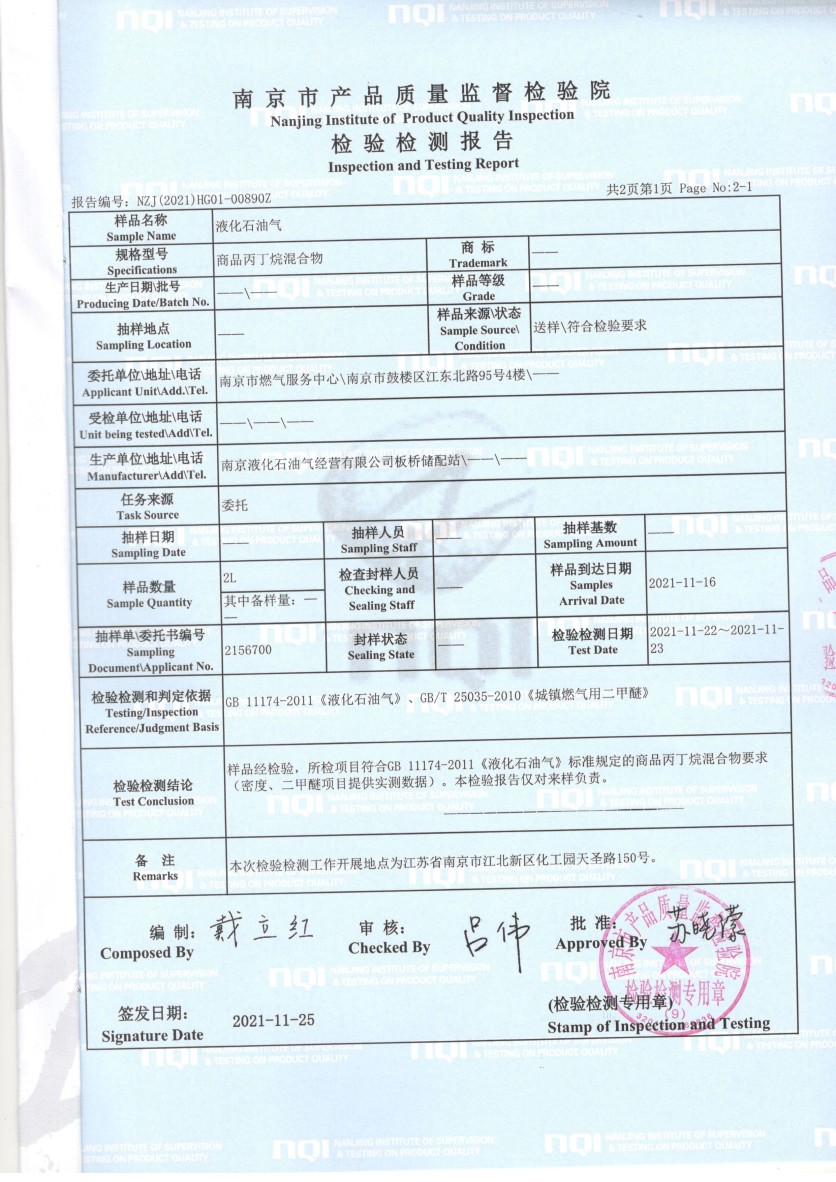 南京市产品质量监督检验院
Nanjing Institute of Product Quality Inspection
检验检测报告
Inspection and Testing Report
报告编号: NZJ(2021)HG01-00890Z
共2页第1页 Page No:2-1
样品名称
Sample Name
液化石油气
规格型号
Specifications
商品丙丁烷混合物
商 标
Trademark
——
生产日期\批号
Producing Date/Batch No.
——\——
样品等级
Grade
——
抽样地点
Sampling Location
——
样品来源\状态
Sample Source\
Condition
送样\符合检验要求
委托单位\地址\电话
Applicant Unit\Add.\Tel.
南京市燃气服务中心\南京市鼓楼区江东北路95号4楼\——
受检单位\地址\电话
Unit being tested\Add\Tel.
——\——\——
生产单位\地址\电话
Manufacturer\Add\Tel.
南京液化石油气经营有限公司板桥储配站\——\——
任务来源
Task Source
委托
抽样日期
Sampling Date
——
抽样人员
Sampling Staff
——
抽样基数
Sampling Amount
——
样品数量
Sample Quantity
2L
其中备样量: —
—
检查封样人员
Checking and
Sealing Staff
——
样品到达日期
Samples
Arrival Date
2021-11-16
抽样单\委托书编号
Sampling
Document\Applicant No.
2156700
封样状态
Sealing State
——
检验检测日期
Test Date
2021-11-22～2021-11-
23
检验检测和判定依据
Testing/Inspection
Reference/Judgment Basis
GB 11174-2011《液化石油气》、GB/T 25035-2010《城镇燃气用二甲醚》
检验检测结论
Test Conclusion
样品经检验，所检项目符合GB 11174-2011《液化石油气》标准规定的商品丙丁烷混合物要求
（密度、二甲醚项目提供实测数据）。本检验报告仅对来样负责。
备 注
Remarks
本次检验检测工作开展地点为江苏省南京市江北新区化工园天圣路150号。
编 制: 戴立红
Composed By
审 核: 吕伟
Checked By
批 准: 苏晓濛
Approved By
南京市产品质量监督检验院
检验检测专用章
(9)
签发日期:
Signature Date
2021-11-25
(检验检测专用章)
Stamp of Inspection and Testing
nqi
NANJING INSTITUTE OF SUPERVISION
& TESTING ON PRODUCT QUALITY